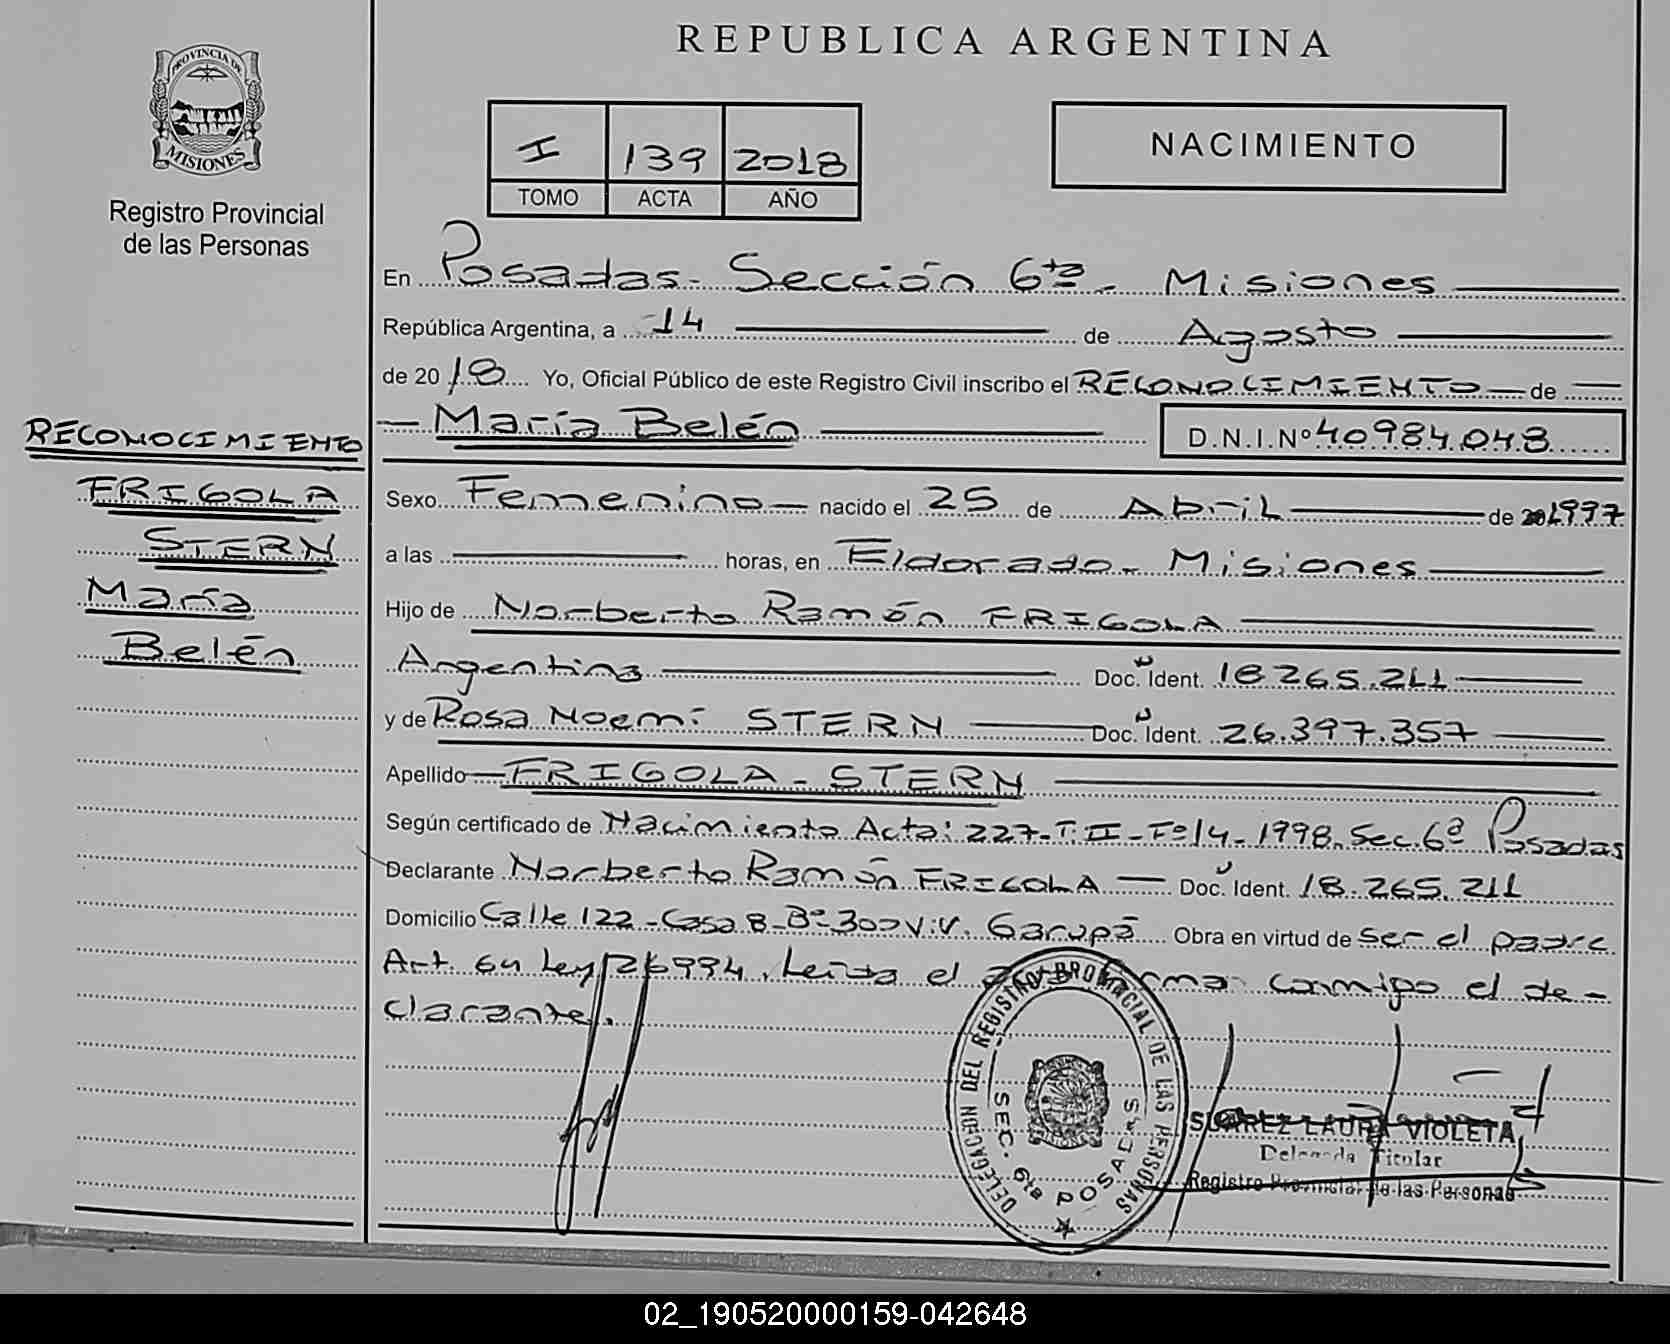 REPUBLICA ARGENTINA
PROVINCIA DE
MISIONES
Registro Provincial
de las Personas
I 139 2018
TOMO ACTA AÑO
NACIMIENTO
En Posadas - Sección 6ta - Misiones
República Argentina, a 14 de Agosto
de 2018 Yo, Oficial Público de este Registro Civil inscribo el RECONOCIMIENTO de
María Belén D.N.I.Nº 40984.048
RECONOCIMIENTO
FRIGOLA
STERN
María
Belén
Sexo Femenino nacido el 25 de Abril de 1997
a las horas, en Eldorado - Misiones
Hijo de Norberto Ramón FRIGOLA
Argentina Doc. Ident. 18265.211
y de Rosa Noemi STERN Doc. Ident. 26.397.357
Apellido FRIGOLA - STERN
Según certificado de Nacimiento Acta: 227-T:II-Fº14-1998. Sec. 6ª Posadas
Declarante Norberto Ramón FRIGOLA Doc. Ident. 18.265.211
Domicilio Calle 122 - Casa 8 - Bº 300 V.V. Garupá Obra en virtud de ser el padre
Art. 64 Ley 26994. Leída el firman conmigo el de-
clarante.
DELEGACION DEL REGISTRO PROVINCIAL DE LAS PERSONAS
SEC. 6ta POSADAS
SUAREZ LAURA VIOLETA
Delegada Titular
Registro Provincial de las Personas
02_190520000159-042648